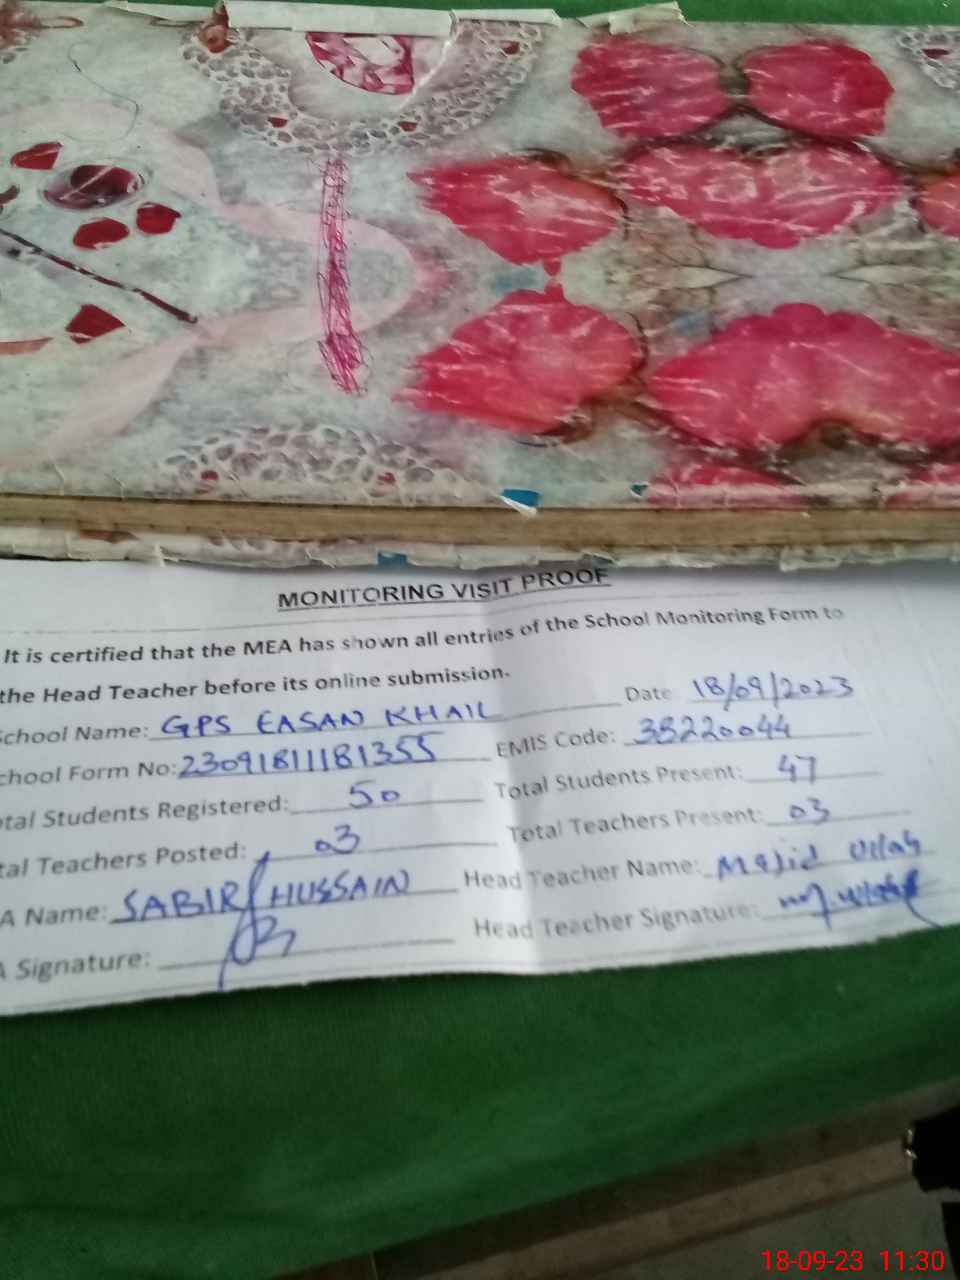 MONITORING VISIT PROOF
It is certified that the MEA has shown all entries of the School Monitoring Form to
the Head Teacher before its online submission.
School Name: GPS EASAN KHAIL Date 18/09/2023
chool Form No: 23091811181355 EMIS Code: 38220044
otal Students Registered: 50 Total Students Present: 47
tal Teachers Posted: 03 Total Teachers Present: 03
A Name: SABIR HUSSAIN Head Teacher Name: Majid Ullah
A Signature: Head Teacher Signature:
18-09-23 11:30